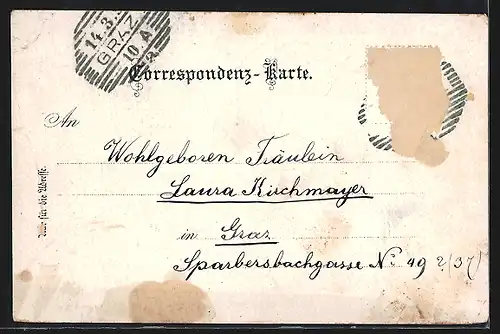 14.3.
GRAZ
10 A
Correspondenz-Karte.
An
Wohlgeboren Fräulein
Laura Kirchmayer
in Graz
Sparbersbachgasse No. 49 2/(37)
Nur für die Adresse.